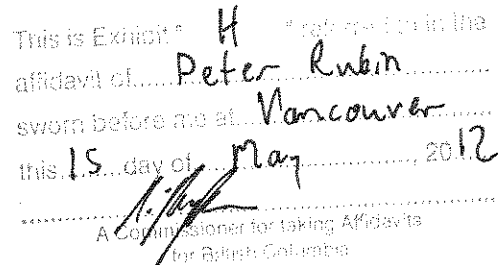 This is Exhibit " H " referred to in the
affidavit of Peter Rubin
sworn before me at Vancouver
this 15 day of May, 2012
A Commissioner for taking Affidavits
for British Columbia